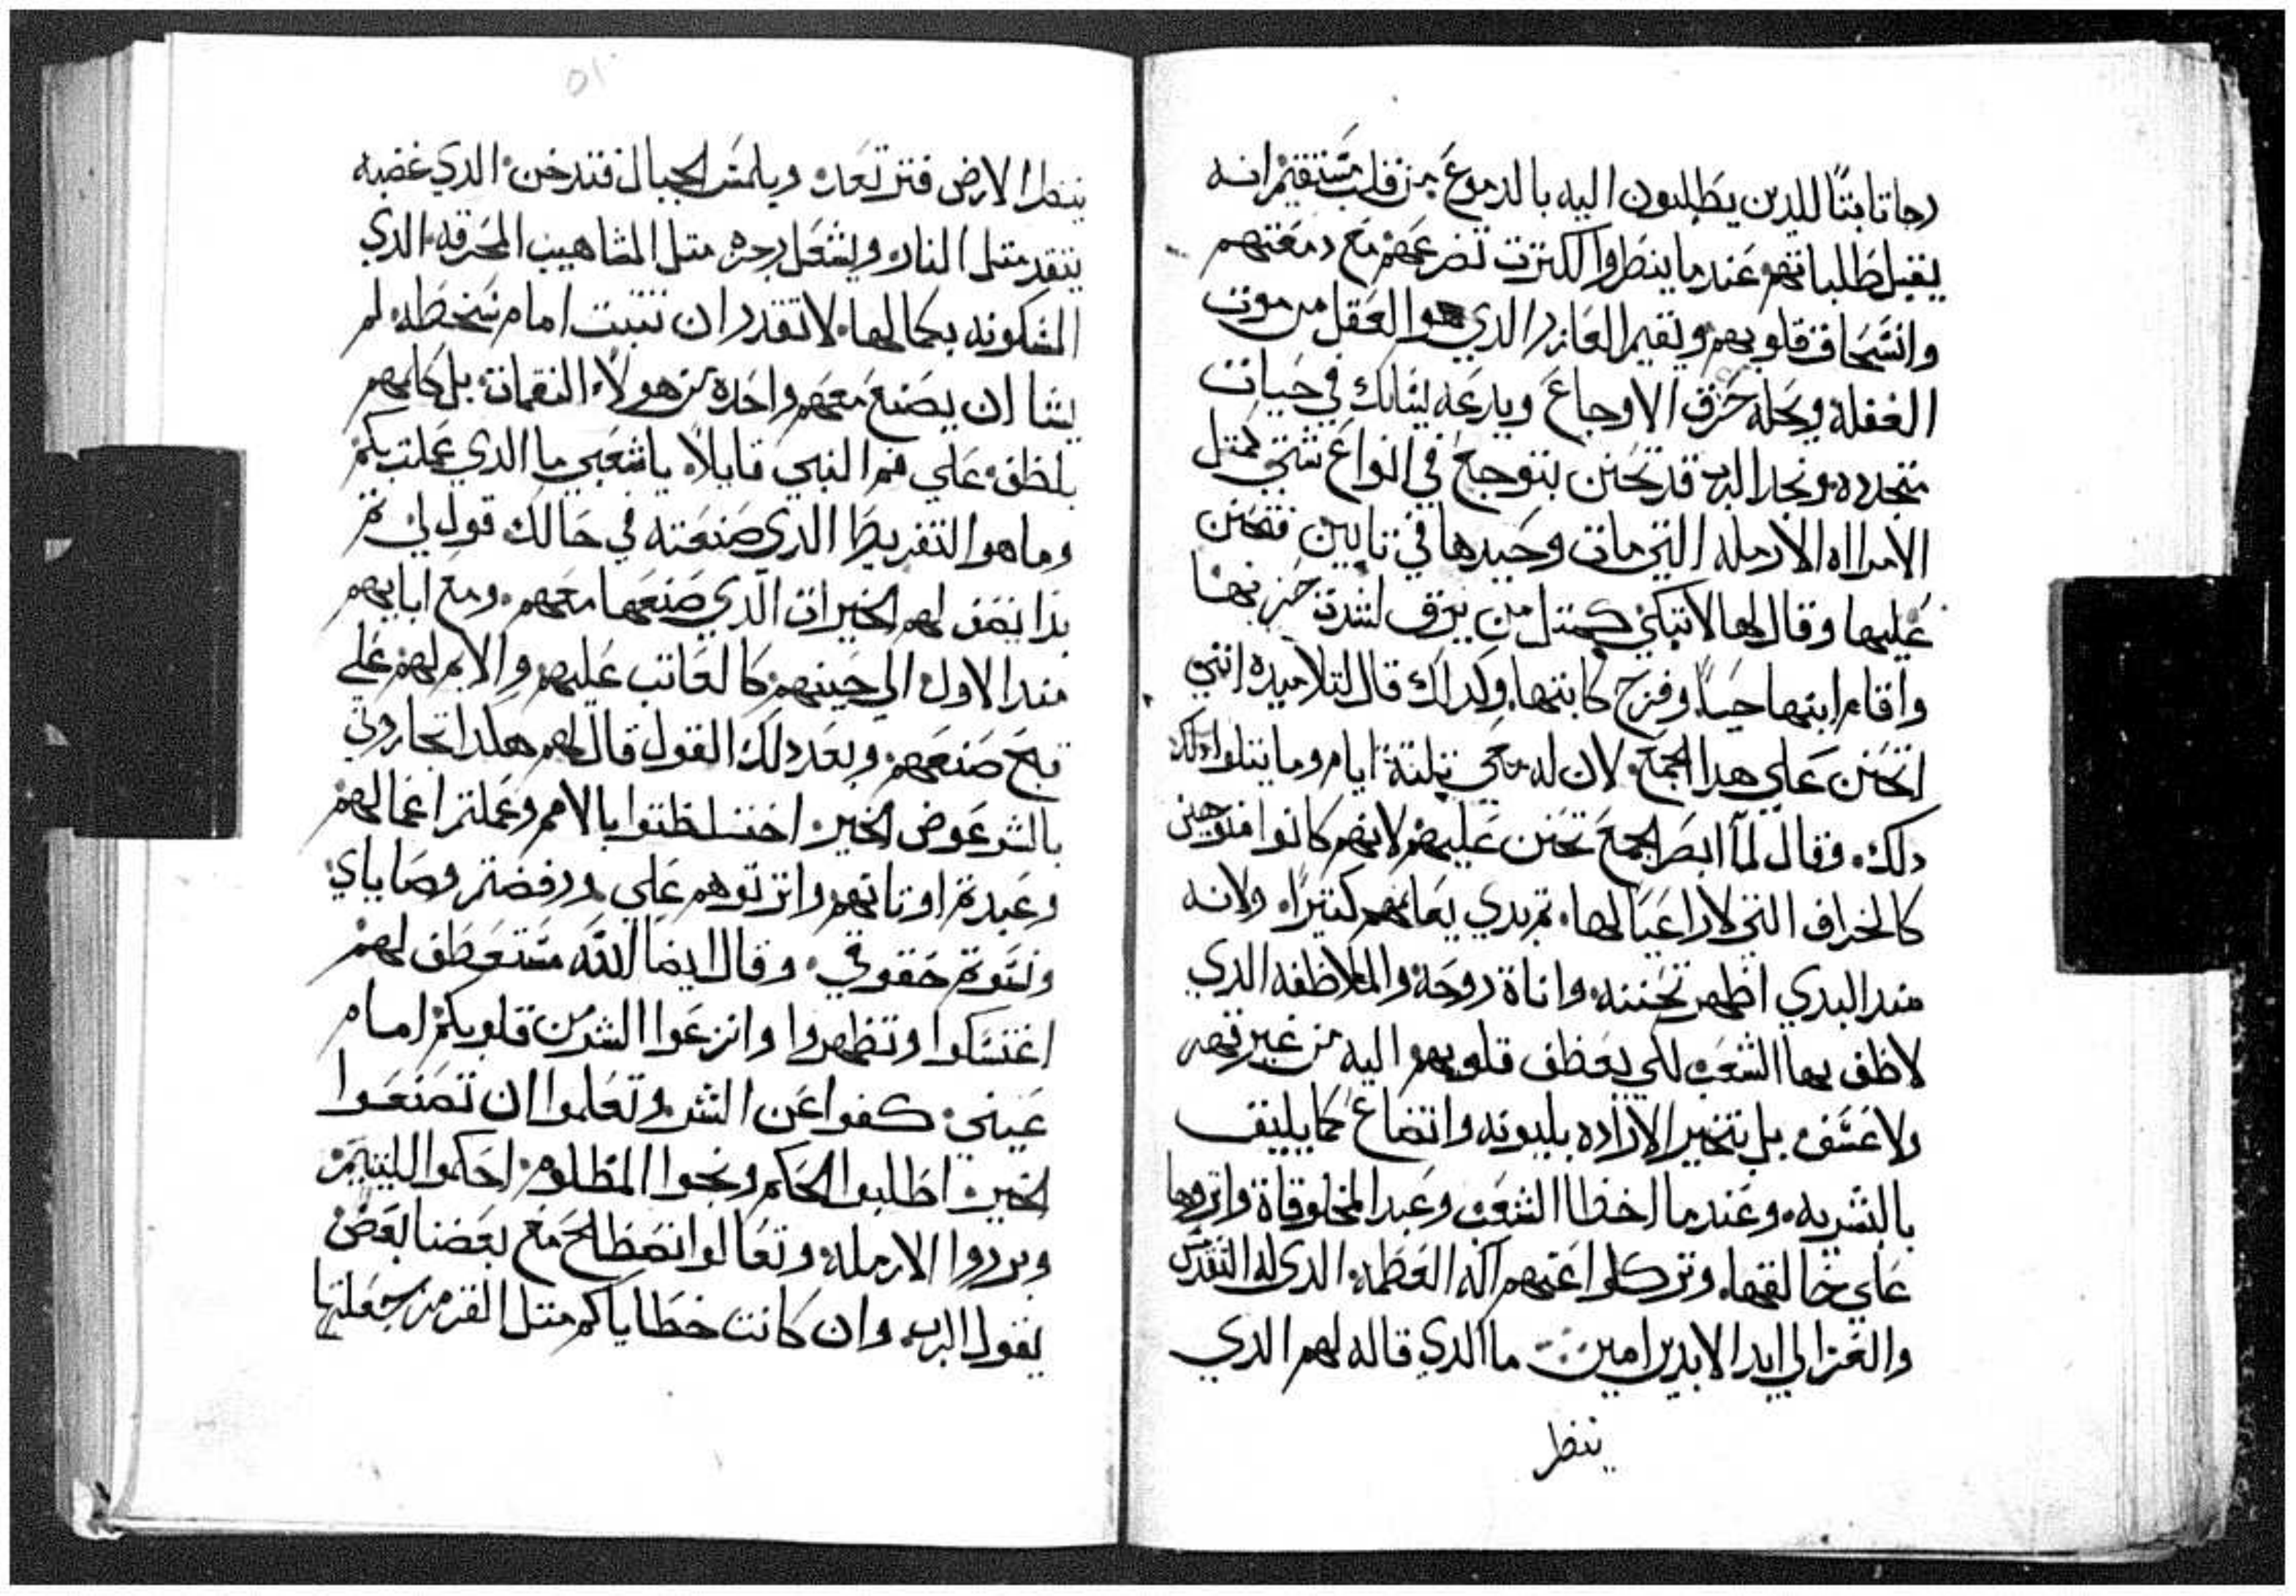 رجا تابتًا للدين يطلبون اليه بالدموع من قلب مستقيم انه
يقبل طلباتهم عندما ينطروا لكترت تضرعهم مع دمعتهم
وانسحاق قلوبهم ويقيم العازر الدي هو العقل من موت
الغفلة ويحله حزق الاوجاع ويدرعه لينالك في حيات
متجدده ونجد الرب قد تحنن بتوجع في انواع شتي كمتل
الامراه الارمله التي مات وحيدها في نايين فتحنن
عليها وقال لها لا تبكي كمتل من يرق لشدة حزنها
واقام ابنها حيًا وفرح كابتها وكداك قال لتلاميده انني
اتحنن علي هدا الجمع لان له معي تلتة ايام وما يتلوا دلك
دلك وقال لما ابصر الجمع تحنن عليهم لانهم كانوا متوجين
كالخراف التي لا راعيا لها تم بدي يعلمهم كتيرًا ولانه
مند البدي اظهر تحننه واناة روحة والملاطفه الدي
لاطف بها الشعب لكي يعطف قلوبهم اليه من غير قهر
ولا عسف بل بتخير الاراده بليونه واتضاع كما يليق
بالبشريه وعندما اخطا الشعب وعبد المخلوقاة واتروها
علي خالقها وتركوا عنهم اله العظمه الدي له التقديس
والعز الي ابد الابدين امين ما الدي قاله لهم الدي
ينطر
٥١
ينطر الارض فترتعد ويلمس الجبال فتدخن الدي غضبه
يتقد متل النار ويشعل رجزه متل المشاهيب المحرقه الدي
المسكونه بكمالها لا تقدر ان تتبت امام سخطه لم
يشا ان يصنع معهم واحده من هولا النقمات بل كلمهم
بلطف علي فم النبي قايلاً يا شعبي ما الدي عملت بكم
وما هو التفريط الدي صنعته في حالك قول لي تم
بدا يصف لهم الخيرات الدي صنعها معهم ومع ابايهم
مند الاول الي حينهم كالعاتب عليهم والايم لهم علي
قبح صنعهم وبعد دلك القول قال لهم هكدا تجاروني
بالشر عوض الخير اختلطتوا بالامم وعملتم اعمالهم
وعبدتم اوتانهم واترتوهم علي ورفضتم وصاياي
ونسوتم حقوقي وقال ايضا الله مستعطف لهم
اغتسلوا وتطهروا وانزعوا الشر من قلوبكم امام
عيني كفوا عن الشر وتعلموا ان تصنعوا
الخير اطلبوا الحكم ونجوا المظلوم احكموا لليتيم
وبرروا الارمله وتعالوا نصطلح مع بعضنا بعض
يقول الرب وان كانت خطاياكم متل القرمز جعلتها